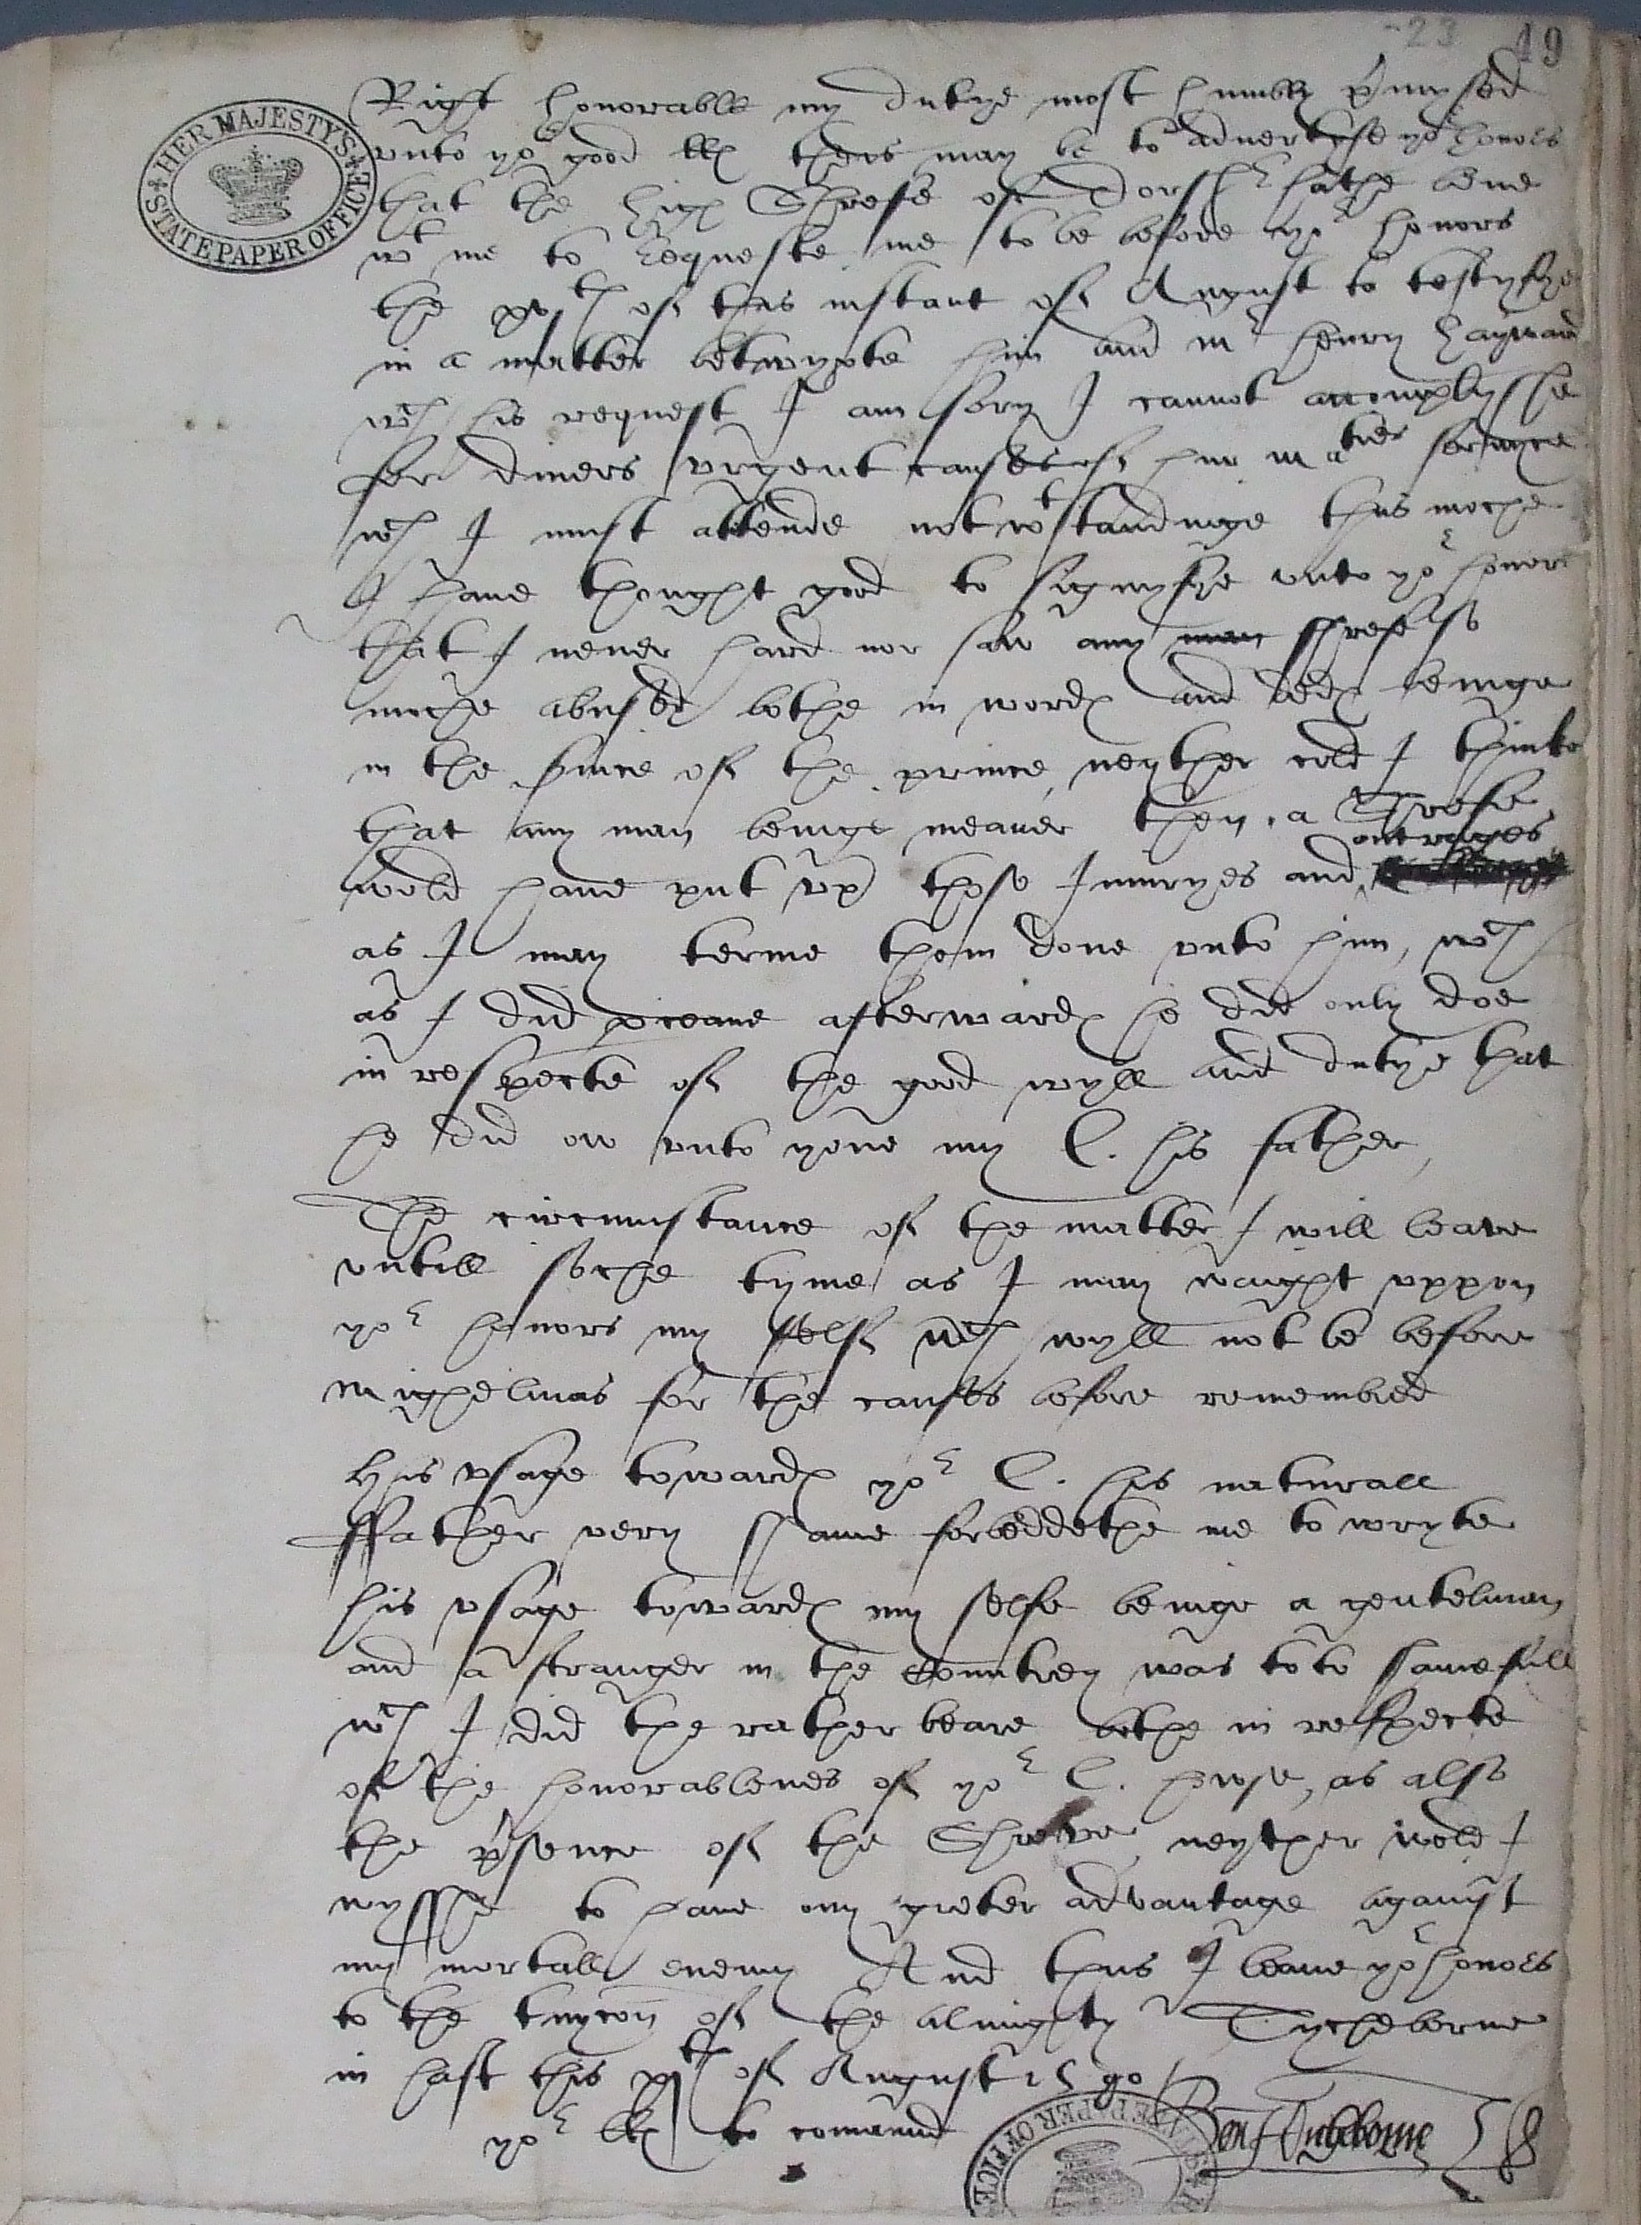 23 19
HER MAJESTY'S STATE PAPER OFFICE
Right honorable my dutye most humbly p̱mysed
vnto yor good llps thes may be to aduertyse yor honors
that the high Shrefe of Dorssr hathe bene
wt me to requeste me to be before yor honors
the xvth of this instant of August to testyfye
in a matter betwyxte him and mr henry haywarde
wch his request I am sory I cannot accomplysshe
for diuers vrgent causes of hur maties servyce
wch I must attende notwtstandinge thus moche
I haue thought good to signyfye vnto yor honors
that I neuer hard nor saw any man shrefe so
moche abused bothe in words and deds beinge
in the service of the prince, neyther cold I thinke
that any man beinge meaner then a Shrefe
outrages
wold haue put vp those Iniuryes and
as I may terme them done vnto him, wch
as I did p̱ceaue afterwards he did only doe
in respecte of the good wyll and dutye that
he did ow vnto youe my L. his father,
The circumstance of the matter I will leave
vntill soche tyme as I may waight vppon
yor honors my selfe wch wyll not be before
mighelmas for the causes before remembred
His vsage towards yor L. his naturall
ffather very shame forbeddethe me to wryte
his vsage towards my selfe beinge a gentelman
and a stranger in the Countrey was to to shamefull
wch I did the rather beare bothe in respecte
of the honorablenes of yor L. howse, as also
the p̱sence of the Shreve neyther wold I
wysshe to haue any greter advantage against
my mortall enemy And thus I leaue yor honors
to the tuycon of the almighty Tycheborne
in hast this xjth of August 1590
yor llps to comaund Beni Tycheborne
STATE PAPER OFFICE